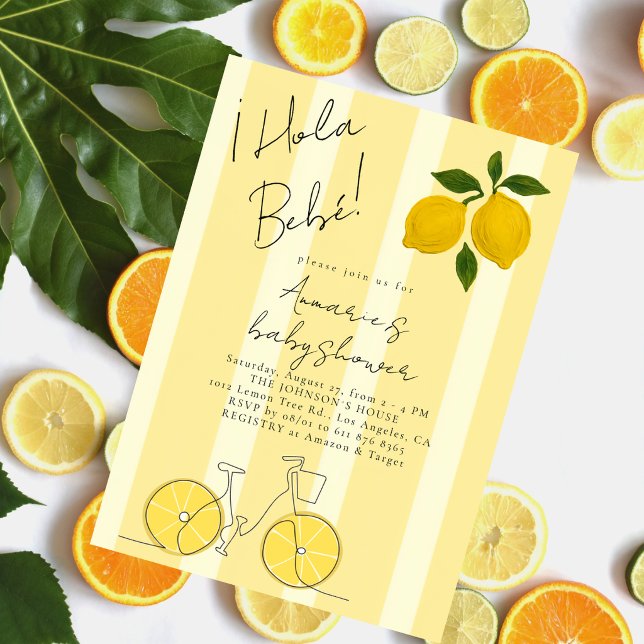 ¡Hola
Bebé!
please join us for
Anmaries
babyshower
Saturday, August 27, from 2 - 4 PM
THE JOHNSON'S HOUSE
1012 Lemon Tree Rd., Los Angeles, CA
RSVP by 08/01 to 611 876 8365
REGISTRY at Amazon & Target